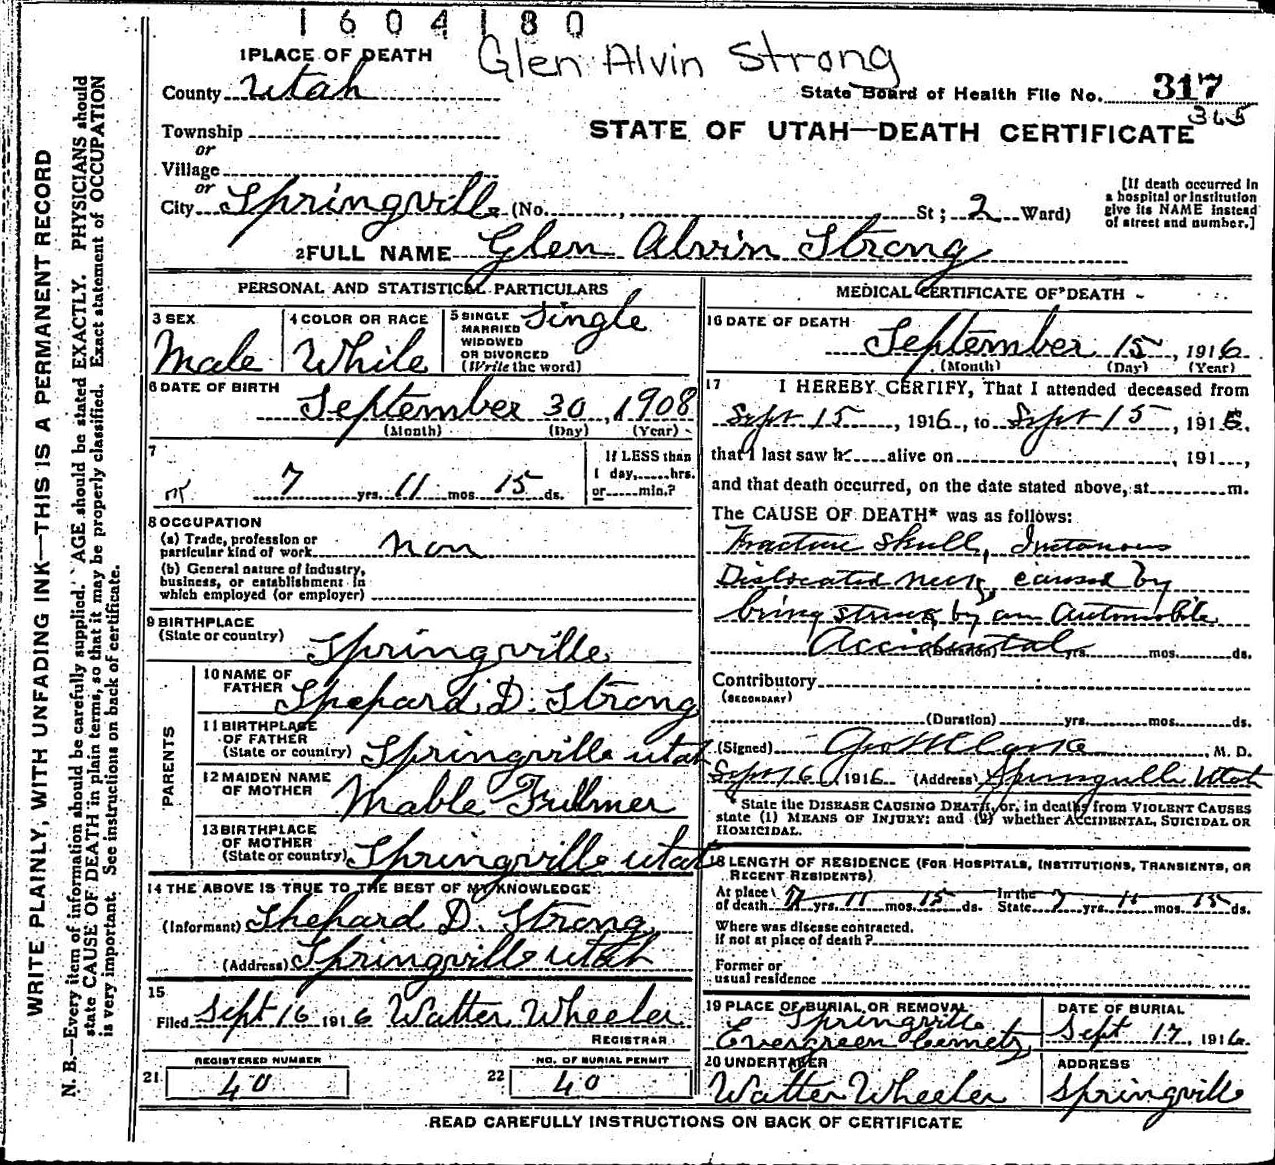 1604180
Glen Alvin Strong
1 PLACE OF DEATH
County Utah
State Board of Health File No. 317
365
Township
or
STATE OF UTAH—DEATH CERTIFICATE
Village
or
City Springville (No. , St; 2 Ward)
[If death occurred in
a hospital or institution
give its NAME instead
of street and number.]
2 FULL NAME Glen Alvin Strong
PERSONAL AND STATISTICAL PARTICULARS
3 SEX
Male
4 COLOR OR RACE
White
5 SINGLE
MARRIED
WIDOWED
OR DIVORCED
(Write the word)
Single
6 DATE OF BIRTH
September 30, 1908
(Month) (Day) (Year)
7
7 yrs. 11 mos. 15 ds.
If LESS than
1 day, hrs.
or min.?
8 OCCUPATION
(a) Trade, profession or
particular kind of work non
(b) General nature of industry,
business, or establishment in
which employed (or employer)
9 BIRTHPLACE
(State or country) Springville
PARENTS
10 NAME OF
FATHER Shepard D. Strong
11 BIRTHPLACE
OF FATHER
(State or country) Springville Utah
12 MAIDEN NAME
OF MOTHER Mable Fullmer
13 BIRTHPLACE
OF MOTHER
(State or country) Springville Utah
14 THE ABOVE IS TRUE TO THE BEST OF MY KNOWLEDGE
(Informant) Shepard D. Strong
(Address) Springville Utah
15
Filed Sept 16 1916 Walter Wheeler
REGISTRAR
REGISTERED NUMBER
21 40
NO. OF BURIAL PERMIT
22 40
MEDICAL CERTIFICATE OF DEATH
16 DATE OF DEATH
September 15, 1916
(Month) (Day) (Year)
17 I HEREBY CERTIFY, That I attended deceased from
Sept 15, 1916, to Sept 15, 1916,
that I last saw h alive on , 191 ,
and that death occurred, on the date stated above, at m.
The CAUSE OF DEATH* was as follows:
Fracture Skull,
Dislocated neck, caused by
being struck by an Automobile
Accidental
(Duration) yrs. mos. ds.
Contributory
(SECONDARY)
(Duration) yrs. mos. ds.
(Signed) M. D.
Sept 16, 1916 (Address) Springville Utah
*State the DISEASE CAUSING DEATH, or, in deaths from VIOLENT CAUSES
state (1) MEANS OF INJURY; and (2) whether ACCIDENTAL, SUICIDAL OR
HOMICIDAL.
18 LENGTH OF RESIDENCE (FOR HOSPITALS, INSTITUTIONS, TRANSIENTS, OR
RECENT RESIDENTS)
At place of death 7 yrs. 11 mos. 15 ds. In the State 7 yrs. 11 mos. 15 ds.
Where was disease contracted,
if not at place of death?
Former or
usual residence
19 PLACE OF BURIAL OR REMOVAL
Springville
Evergreen
DATE OF BURIAL
Sept 17, 1916
20 UNDERTAKER
Walter Wheeler
ADDRESS
Springville
READ CAREFULLY INSTRUCTIONS ON BACK OF CERTIFICATE
WRITE PLAINLY, WITH UNFADING INK—THIS IS A PERMANENT RECORD
N. B.—Every item of information should be carefully supplied. AGE should be stated EXACTLY. PHYSICIANS should
state CAUSE OF DEATH in plain terms, so that it may be properly classified. Exact statement of OCCUPATION
is very important. See instructions on back of certificate.